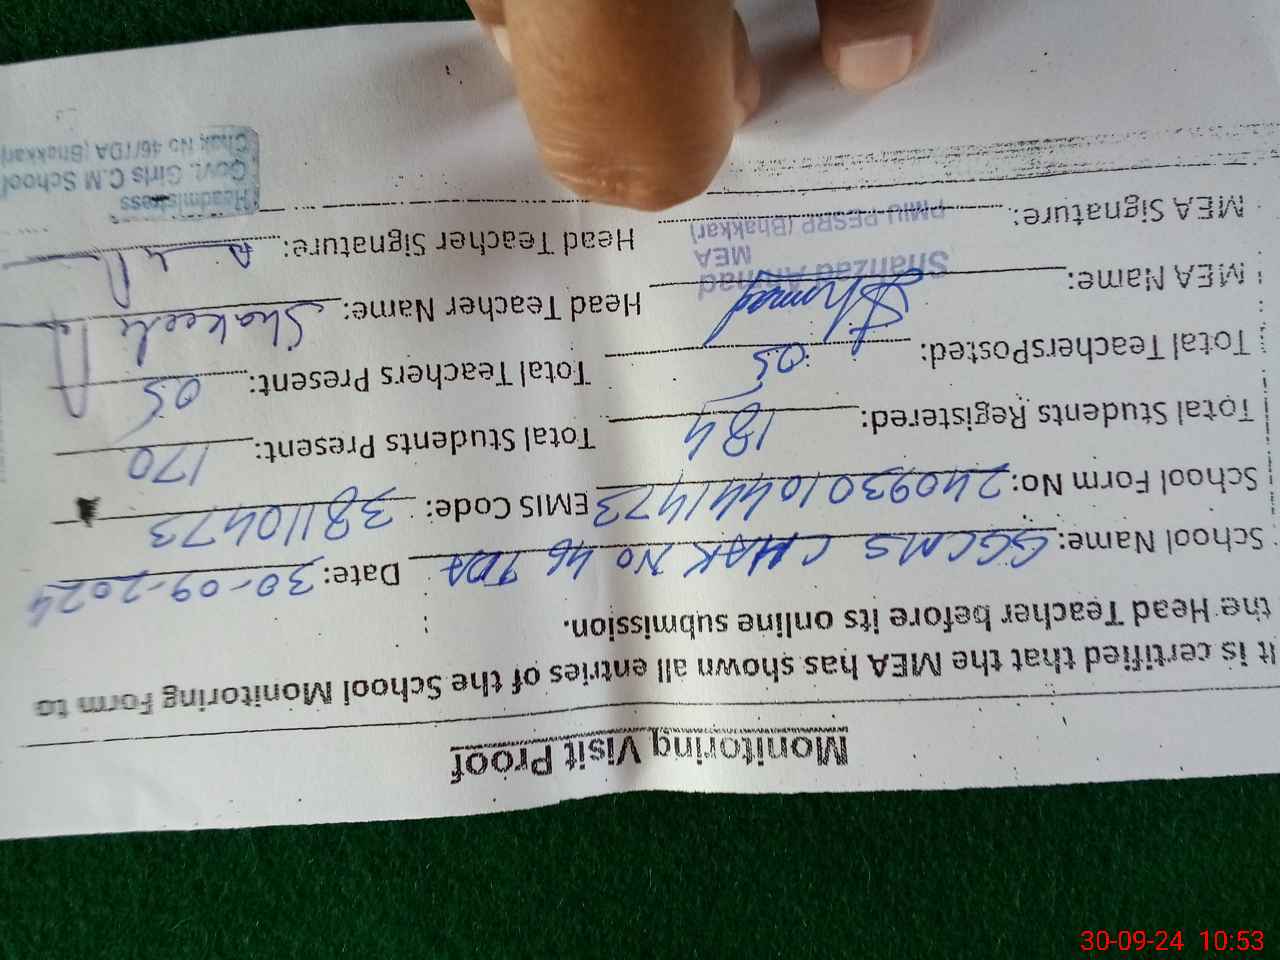 Monitoring Visit Proof
It is certified that the MEA has shown all entries of the School Monitoring Form to
the Head Teacher before its online submission.
School Name: GGCMS CHAK NO 46 TDA Date: 30-09-2024
School Form No: EMIS Code: 38110473
Total Students Registered: 184 Total Students Present: 170
Total TeachersPosted: 05 Total Teachers Present: 05
MEA Name: Head Teacher Name: Shakeela
Shahzad Ahmad
MEA
PMIU-PESRP (Bhakkar)
MEA Signature: Head Teacher Signature:
Headmistress
Govt. Girls C.M School
Chak No 46/TDA (Bhakkar)
30-09-24 10:53